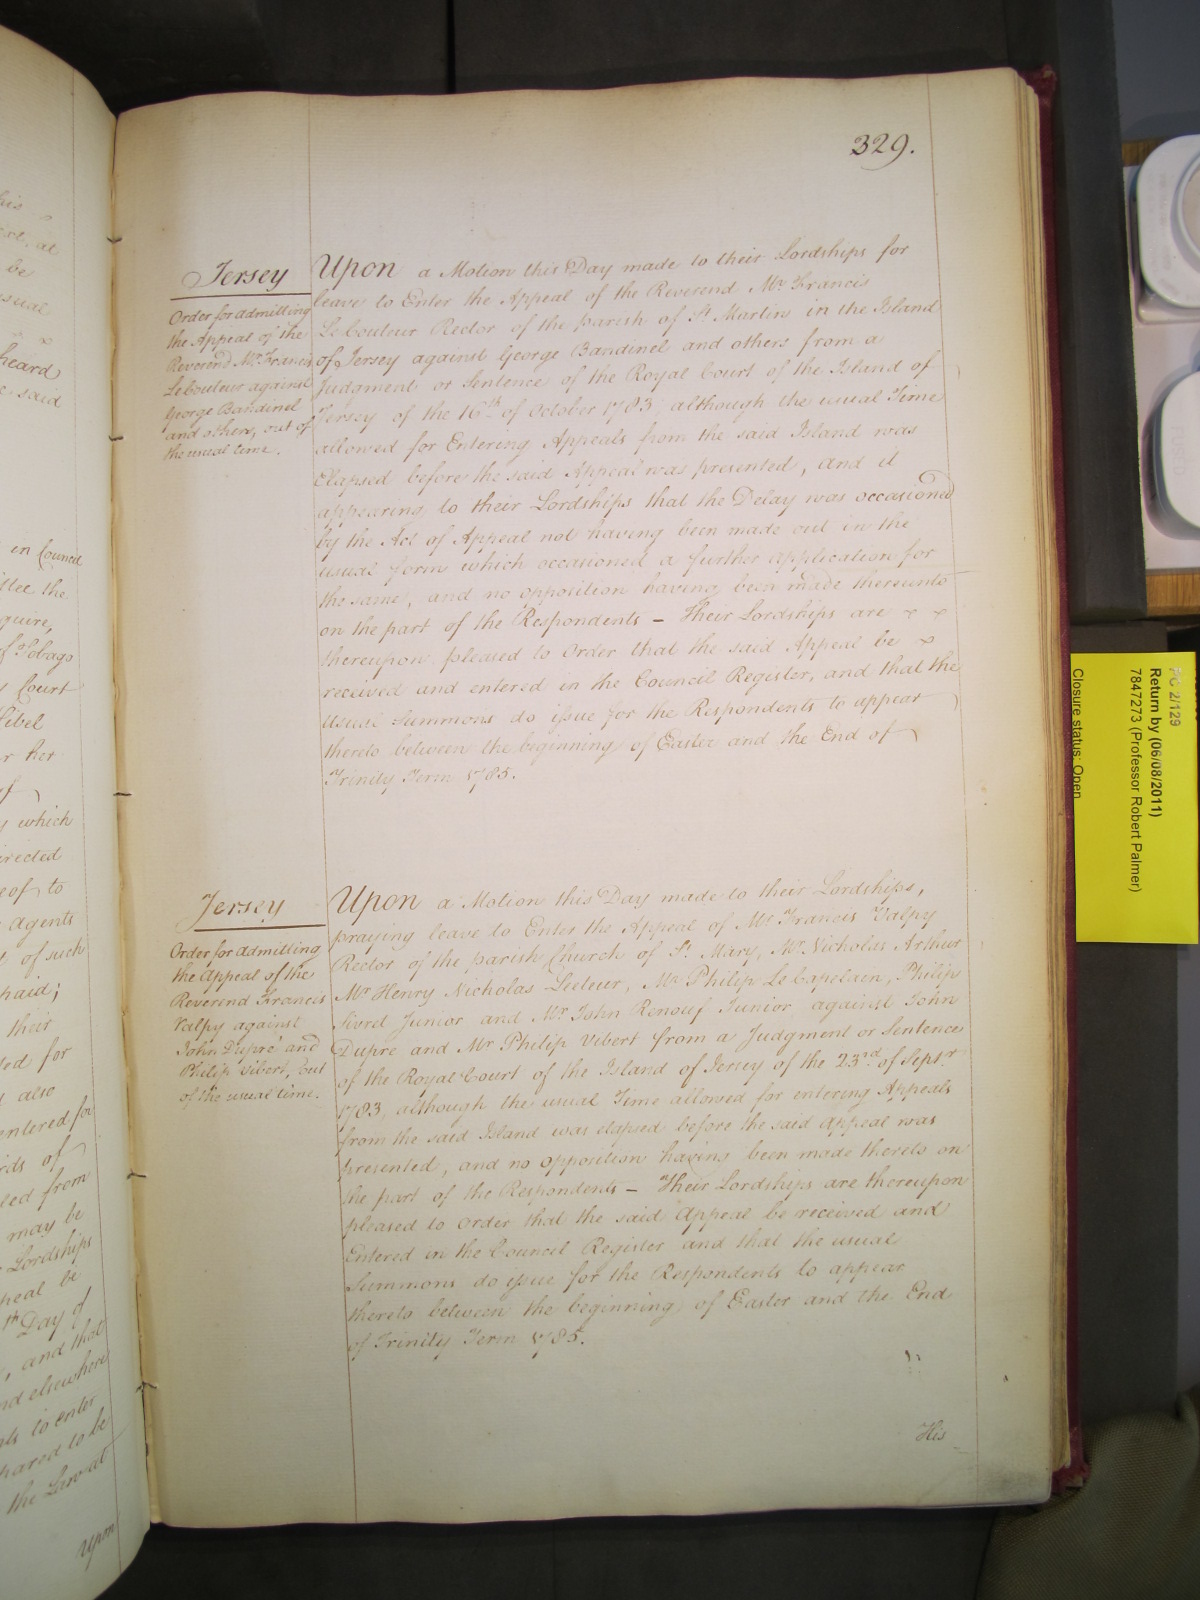 329.
Jersey
Order for admitting
the Appeal of the
Reverend Mr. Francis
Le Couteur against
George Bandinel
and others, out of
the usual time.
Upon a Motion this Day made to their Lordships for
leave to Enter the Appeal of the Reverend Mr. Francis
Le Couteur Rector of the parish of St. Martins in the Island
of Jersey against George Bandinel and others from a
Judgment or Sentence of the Royal Court of the Island of
Jersey of the 16th of October 1783, although the usual Time
allowed for Entering Appeals from the said Island was
Elapsed before the said Appeal was presented, and it
appearing to their Lordships that the Delay was occasioned
by the Act of Appeal not having been made out in the
usual form which occasioned a further application for
the same, and no opposition having been made thereunto
on the part of the Respondents – Their Lordships are
thereupon pleased to Order that the said Appeal be
received and entered in the Council Register, and that the
usual Summons do issue for the Respondents to appear
thereto between the beginning of Easter and the End of
Trinity Term 1785.
Jersey
Order for admitting
the Appeal of the
Reverend Francis
Valpy against
John Dupré and
Philip Vibert, out
of the usual time.
Upon a Motion this Day made to their Lordships,
praying leave to Enter the Appeal of Mr. Francis Valpy
Rector of the parish Church of St. Mary, Mr. Nicholas Arthur
Mr Henry Nicholas Mr Philip Le Capelain, Philip
Sivret Junior and Mr. John Renouf Junior against John
Dupre and Mr Philip Vibert from a Judgment or Sentence
of the Royal Court of the Island of Jersey of the 23rd of Septr.
1783, although the usual Time allowed for entering Appeals
from the said Island was elapsed before the said Appeal was
presented, and no opposition having been made thereto on
the part of the Respondents – Their Lordships are thereupon
pleased to Order that the said Appeal be received and
Entered in the Council Register and that the usual
Summons do issue for the Respondents to appear
thereto between the beginning of Easter and the End
of Trinity Term 1785.
His
PC 2/129
Return by (06/08/2011)
7847273 (Professor Robert Palmer)
Closure status: Open
be
heard
said
in Council
the
of Tobago
Court
Libel
her
of
which
to
agents
of such
paid;
their
for
also
entered for
of
from
may be
Lordships
be
Day of
, and that
to enter
to be
the Law
Upon